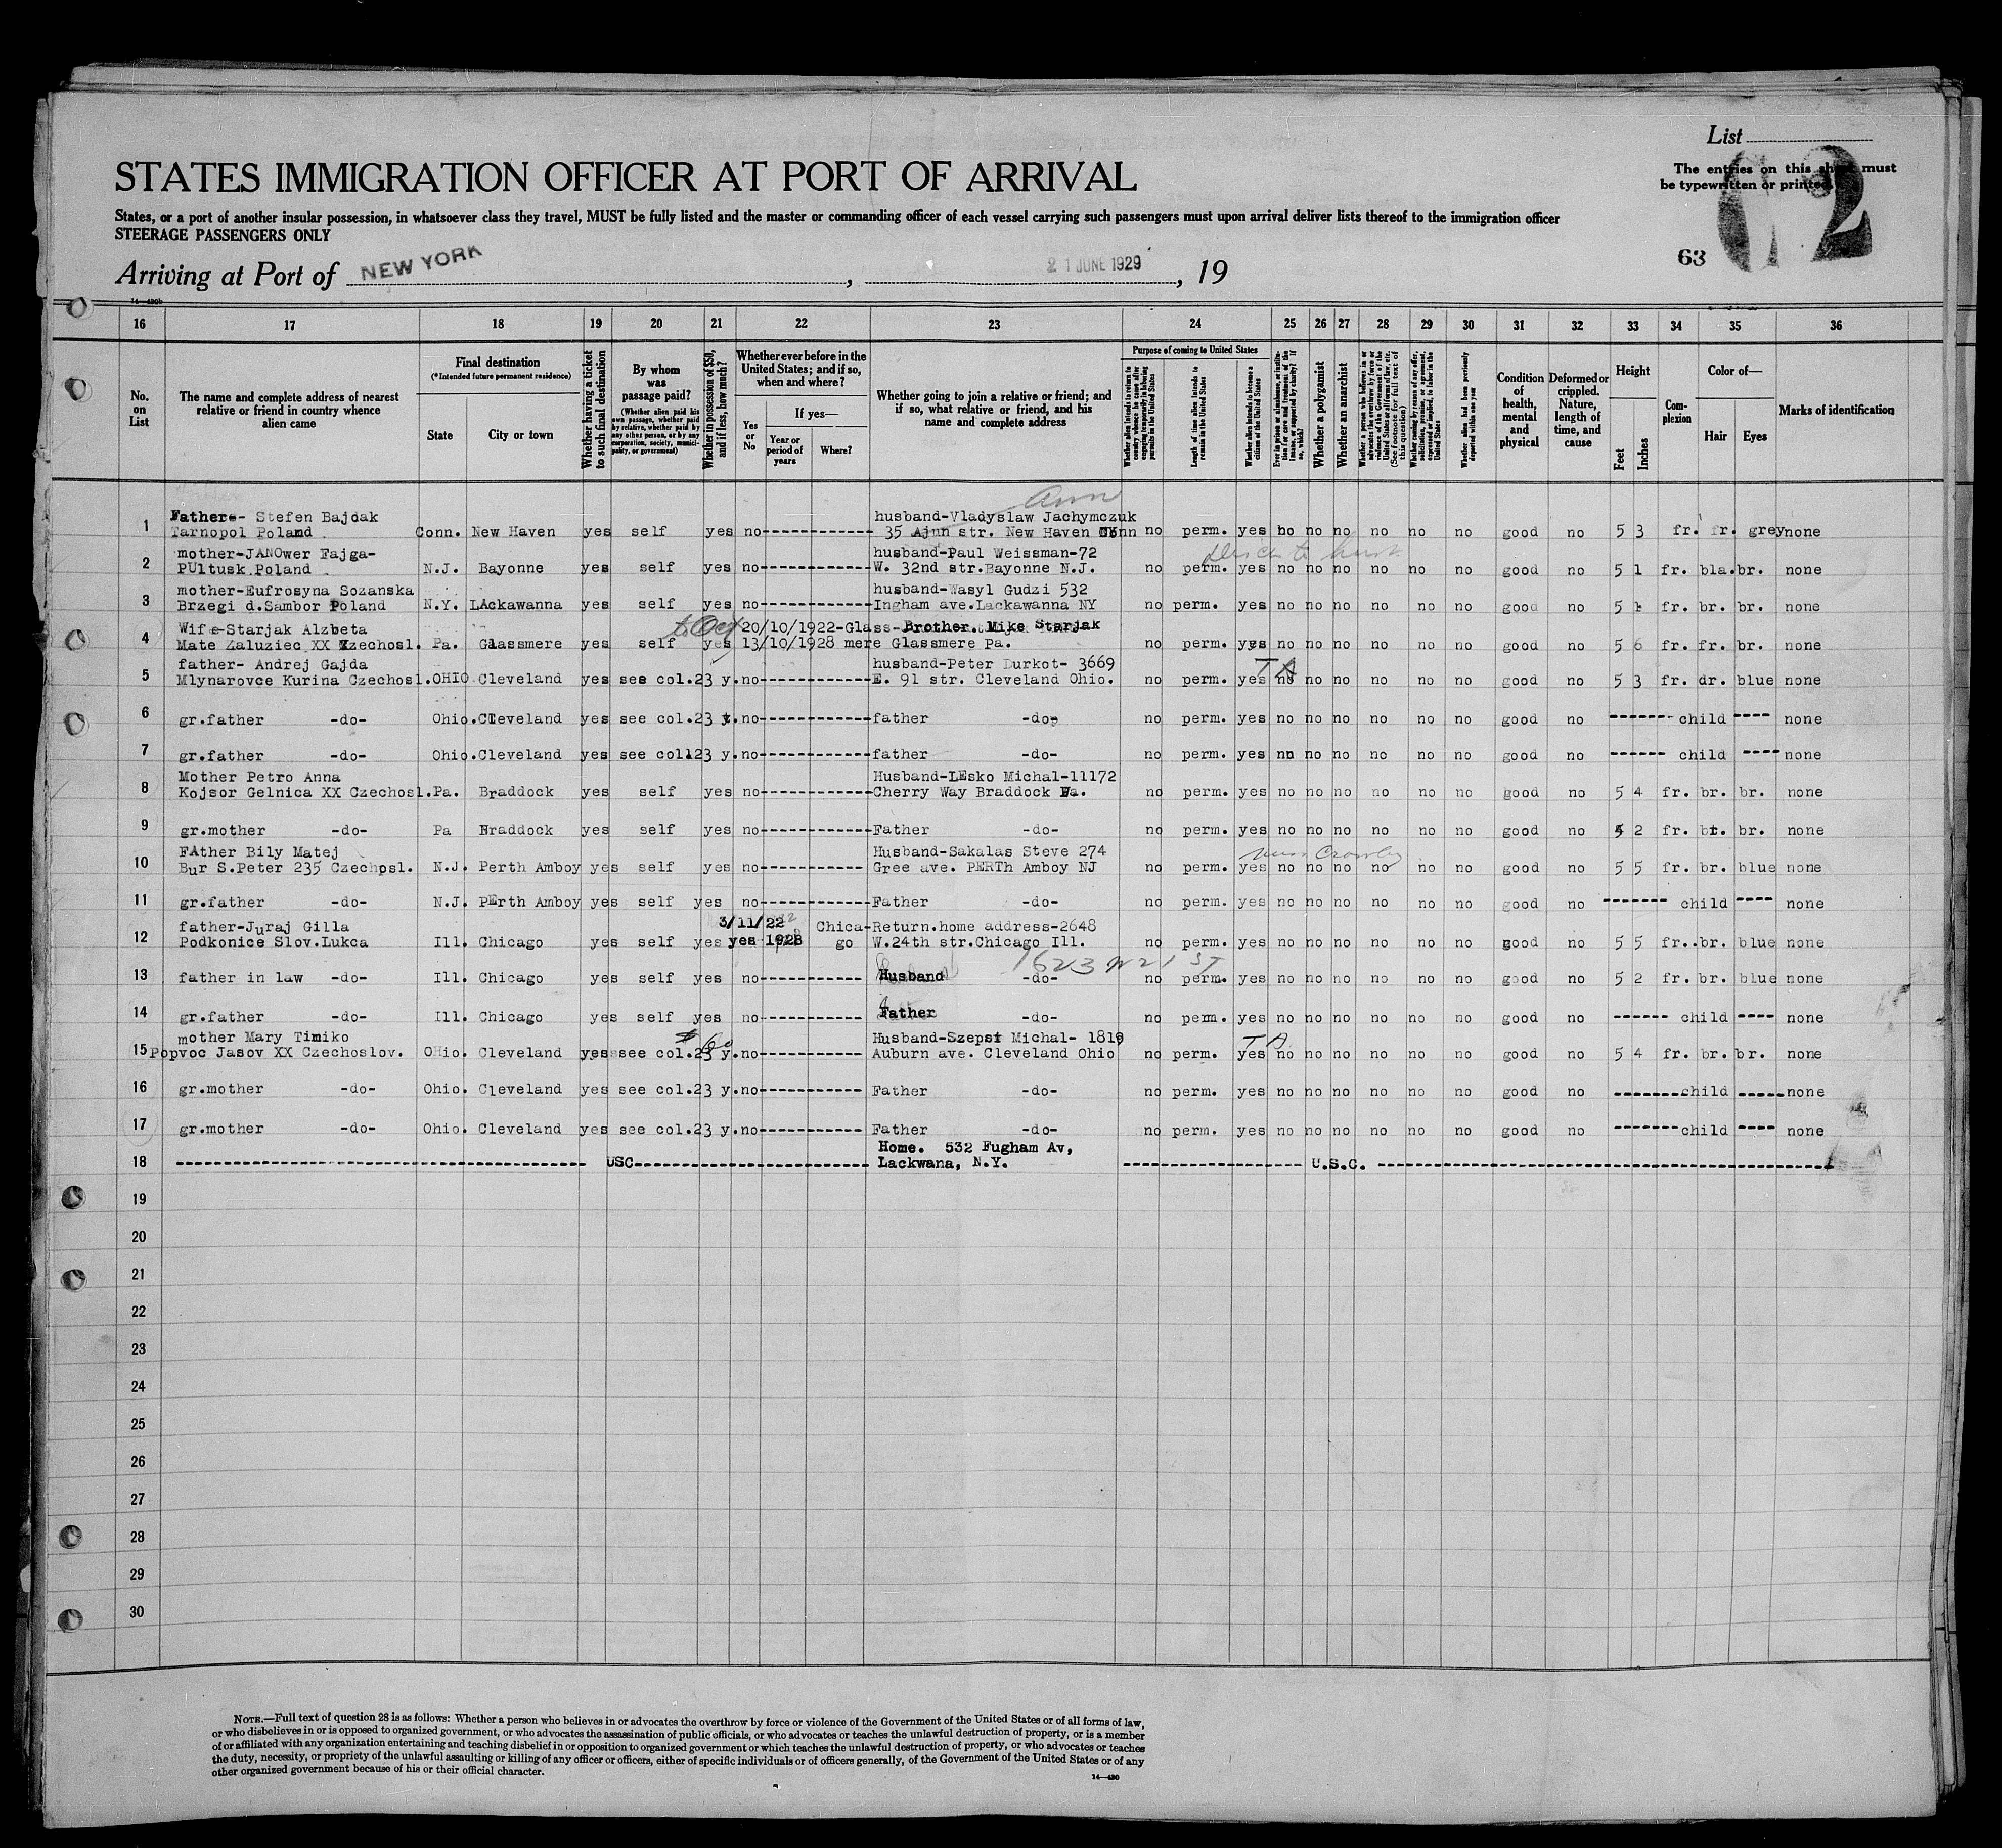 List
STATES IMMIGRATION OFFICER AT PORT OF ARRIVAL
The entries on this sheet must
be typewritten or printed.
States, or a port of another insular possession, in whatsoever class they travel, MUST be fully listed and the master or commanding officer of each vessel carrying such passengers must upon arrival deliver lists thereof to the immigration officer
STEERAGE PASSENGERS ONLY
63
2
Arriving at Port of NEW YORK , 21 JUNE 1929 , 19
14—430b
16 17 18 19 20 21 22 23 24 25 26 27 28 29 30 31 32 33 34 35 36
No. on List
The name and complete address of nearest relative or friend in country whence alien came
Final destination
(*Intended future permanent residence)
State
City or town
Whether having a ticket to such final destination
By whom was passage paid?
(Whether alien paid his own passage, whether paid by relative, whether paid by any other person, or by any corporation, society, municipality, or government)
Whether in possession of $50, and if less, how much?
Whether ever before in the United States; and if so, when and where?
Yes or No
If yes—
Year or period of years
Where?
Whether going to join a relative or friend; and if so, what relative or friend, and his name and complete address
Purpose of coming to United States
Whether alien intends to return to country whence he came after engaging temporarily in laboring pursuits in the United States
Length of time alien intends to remain in the United States
Whether alien intends to become a citizen of the United States
Ever in prison or almshouse, or institution for care and treatment of the insane, or supported by charity? If so, which?
Whether a polygamist
Whether an anarchist
(See footnote for full text of this question)
Whether coming by reason of any offer, solicitation, promise, or agreement, expressed or implied, to labor in the United States
Whether alien had been previously deported within one year
Condition of health, mental and physical
Deformed or crippled. Nature, length of time, and cause
Height
Feet
Inches
Complexion
Color of—
Hair
Eyes
Marks of identification
Ann
1 Father-- Stefen Bajdak husband-Vladyslaw Jachymczuk
Tarnopol Poland Conn. New Haven yes self yes no------------ 35 Ajun str. New Haven Conn no perm. yes no no no no no no good no 5 3 fr. fr. grey none
2 mother-JANOwer Fajga- husband-Paul Weissman-72
PUltusk Poland N.J. Bayonne yes self yes no------------ W. 32nd str.Bayonne N.J. no perm. yes no no no no no no good no 5 1 fr. bla. br. none
3 mother-Eufrosyna Sozanska husband-Wasyl Gudzi 532
Brzegi d.Sambor Poland N.Y. LAckawanna yes self yes no------------ Ingham ave.Lackawanna NY no perm. yes no no no no no no good no 5 1 fr. br. br. none
4 Wife-Starjak Alzbeta 20/10/1922-Glass-Brother. Mike Starjak
Mate Zaluziec XX Czechosl. Pa. Glassmere yes self yes 13/10/1928 mere Glassmere Pa. no perm. yes no no no no no no good no 5 6 fr. fr. br. none
5 father- Andrej Gajda husband-Peter Durkot- 3669 T A
Mlynarovce Kurina Czechosl. OHIO Cleveland yes see col.23 y. no------------ E. 91 str. Cleveland Ohio. no perm. yes no no no no no no good no 5 3 fr. dr. blue none
6 gr.father -do- Ohio. Cleveland yes see col.23 y. no------------ father -do- no perm. yes no no no no no no good no ------- child ---- none
7 gr.father -do- Ohio. Cleveland yes see coll23 y. no------------ father -do- no perm. yes no no no no no no good no ------ child ---- none
8 Mother Petro Anna Husband-LEsko Michal-11172
Kojsor Gelnica XX Czechosl. Pa. Braddock yes self yes no------------ Cherry Way Braddock Pa. no perm. yes no no no no no no good no 5 4 fr. br. br. none
9 gr.mother -do- Pa Braddock yes self yes no------------ Father -do- no perm. yes no no no no no no good no 5 2 fr. br. br. none
10 FAther Bily Matej Husband-Sakalas Steve 274
Bur S.Peter 235 Czechpsl. N.J. Perth Amboy yes self yes no------------ Gree ave. PERTh Amboy NJ no perm. yes no no no no no no good no 5 5 fr. br. blue none
11 gr.father -do- N.J. PErth Amboy yes self yes no------------ Father -do- no perm. yes no no no no no no good no ------- child ---- none
12 father-Juraj Gilla 3/11/22 Chica-Return.home address-2648
Podkonice Slov.Lukca Ill. Chicago yes self yes yes 1928 go W.24th str.Chicago Ill. no perm. yes no no no no no no good no 5 5 fr.. br. blue none
1623 W 21 ST
13 father in law -do- Ill. Chicago yes self yes no------------ Husband -do- no perm. yes no no no no no no good no 5 2 fr. br. blue none
14 gr.father -do- Ill. Chicago yes self yes no------------ Father -do- no perm. yes no no no no no no good no ------ child ---- none
15 mother Mary Timiko $60 Husband-Szepsi Michal- 1819 T A
Popvoc Jasov XX Czechoslov. OHio. Cleveland yes see col.23 y. no------------ Auburn ave. Cleveland Ohio no perm. yes no no no no no no good no 5 4 fr. br. br. none
16 gr.mother -do- Ohio. Cleveland yes see col.23 y. no------------ Father -do- no perm. yes no no no no no no good no -------child -----none
17 gr.mother -do- Ohio. Cleveland yes see col.23 y. no------------ Father -do- no perm. yes no no no no no no good no -------child ---- none
Home. 532 Fugham Av,
18 ------------ USC------------ Lackwana, N.Y. ------------ U.S.C. ------------
19
20
21
22
23
24
25
26
27
28
29
30
NOTE.—Full text of question 28 is as follows: Whether a person who believes in or advocates the overthrow by force or violence of the Government of the United States or of all forms of law,
or who disbelieves in or is opposed to organized government, or who advocates the assassination of public officials, or who advocates or teaches the unlawful destruction of property, or is a member
of or affiliated with any organization entertaining and teaching disbelief in or opposition to organized government or which teaches the unlawful destruction of property, or who advocates or teaches
the duty, necessity, or propriety of the unlawful assaulting or killing of any officer or officers, either of specific individuals or of officers generally, of the Government of the United States or of any
other organized government because of his or their official character.
14—430